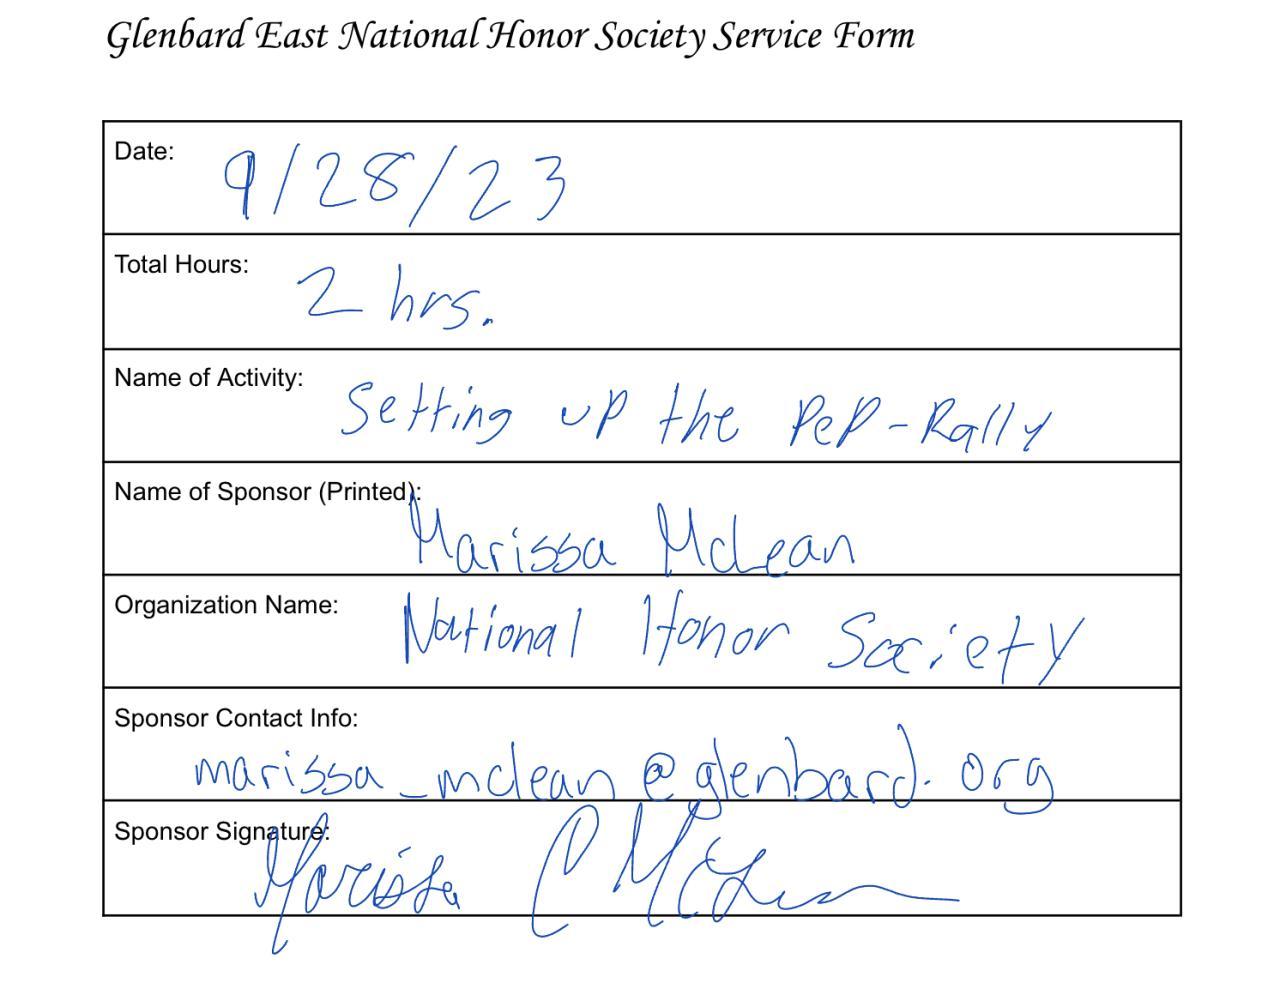 Glenbard East National Honor Society Service Form
Date: 9/28/23
Total Hours: 2 hrs.
Name of Activity: Setting up the Pep-Rally
Name of Sponsor (Printed): Marissa McLean
Organization Name: National Honor Society
Sponsor Contact Info:
marissa_mclean@glenbard.org
Sponsor Signature: Marissa C McLean